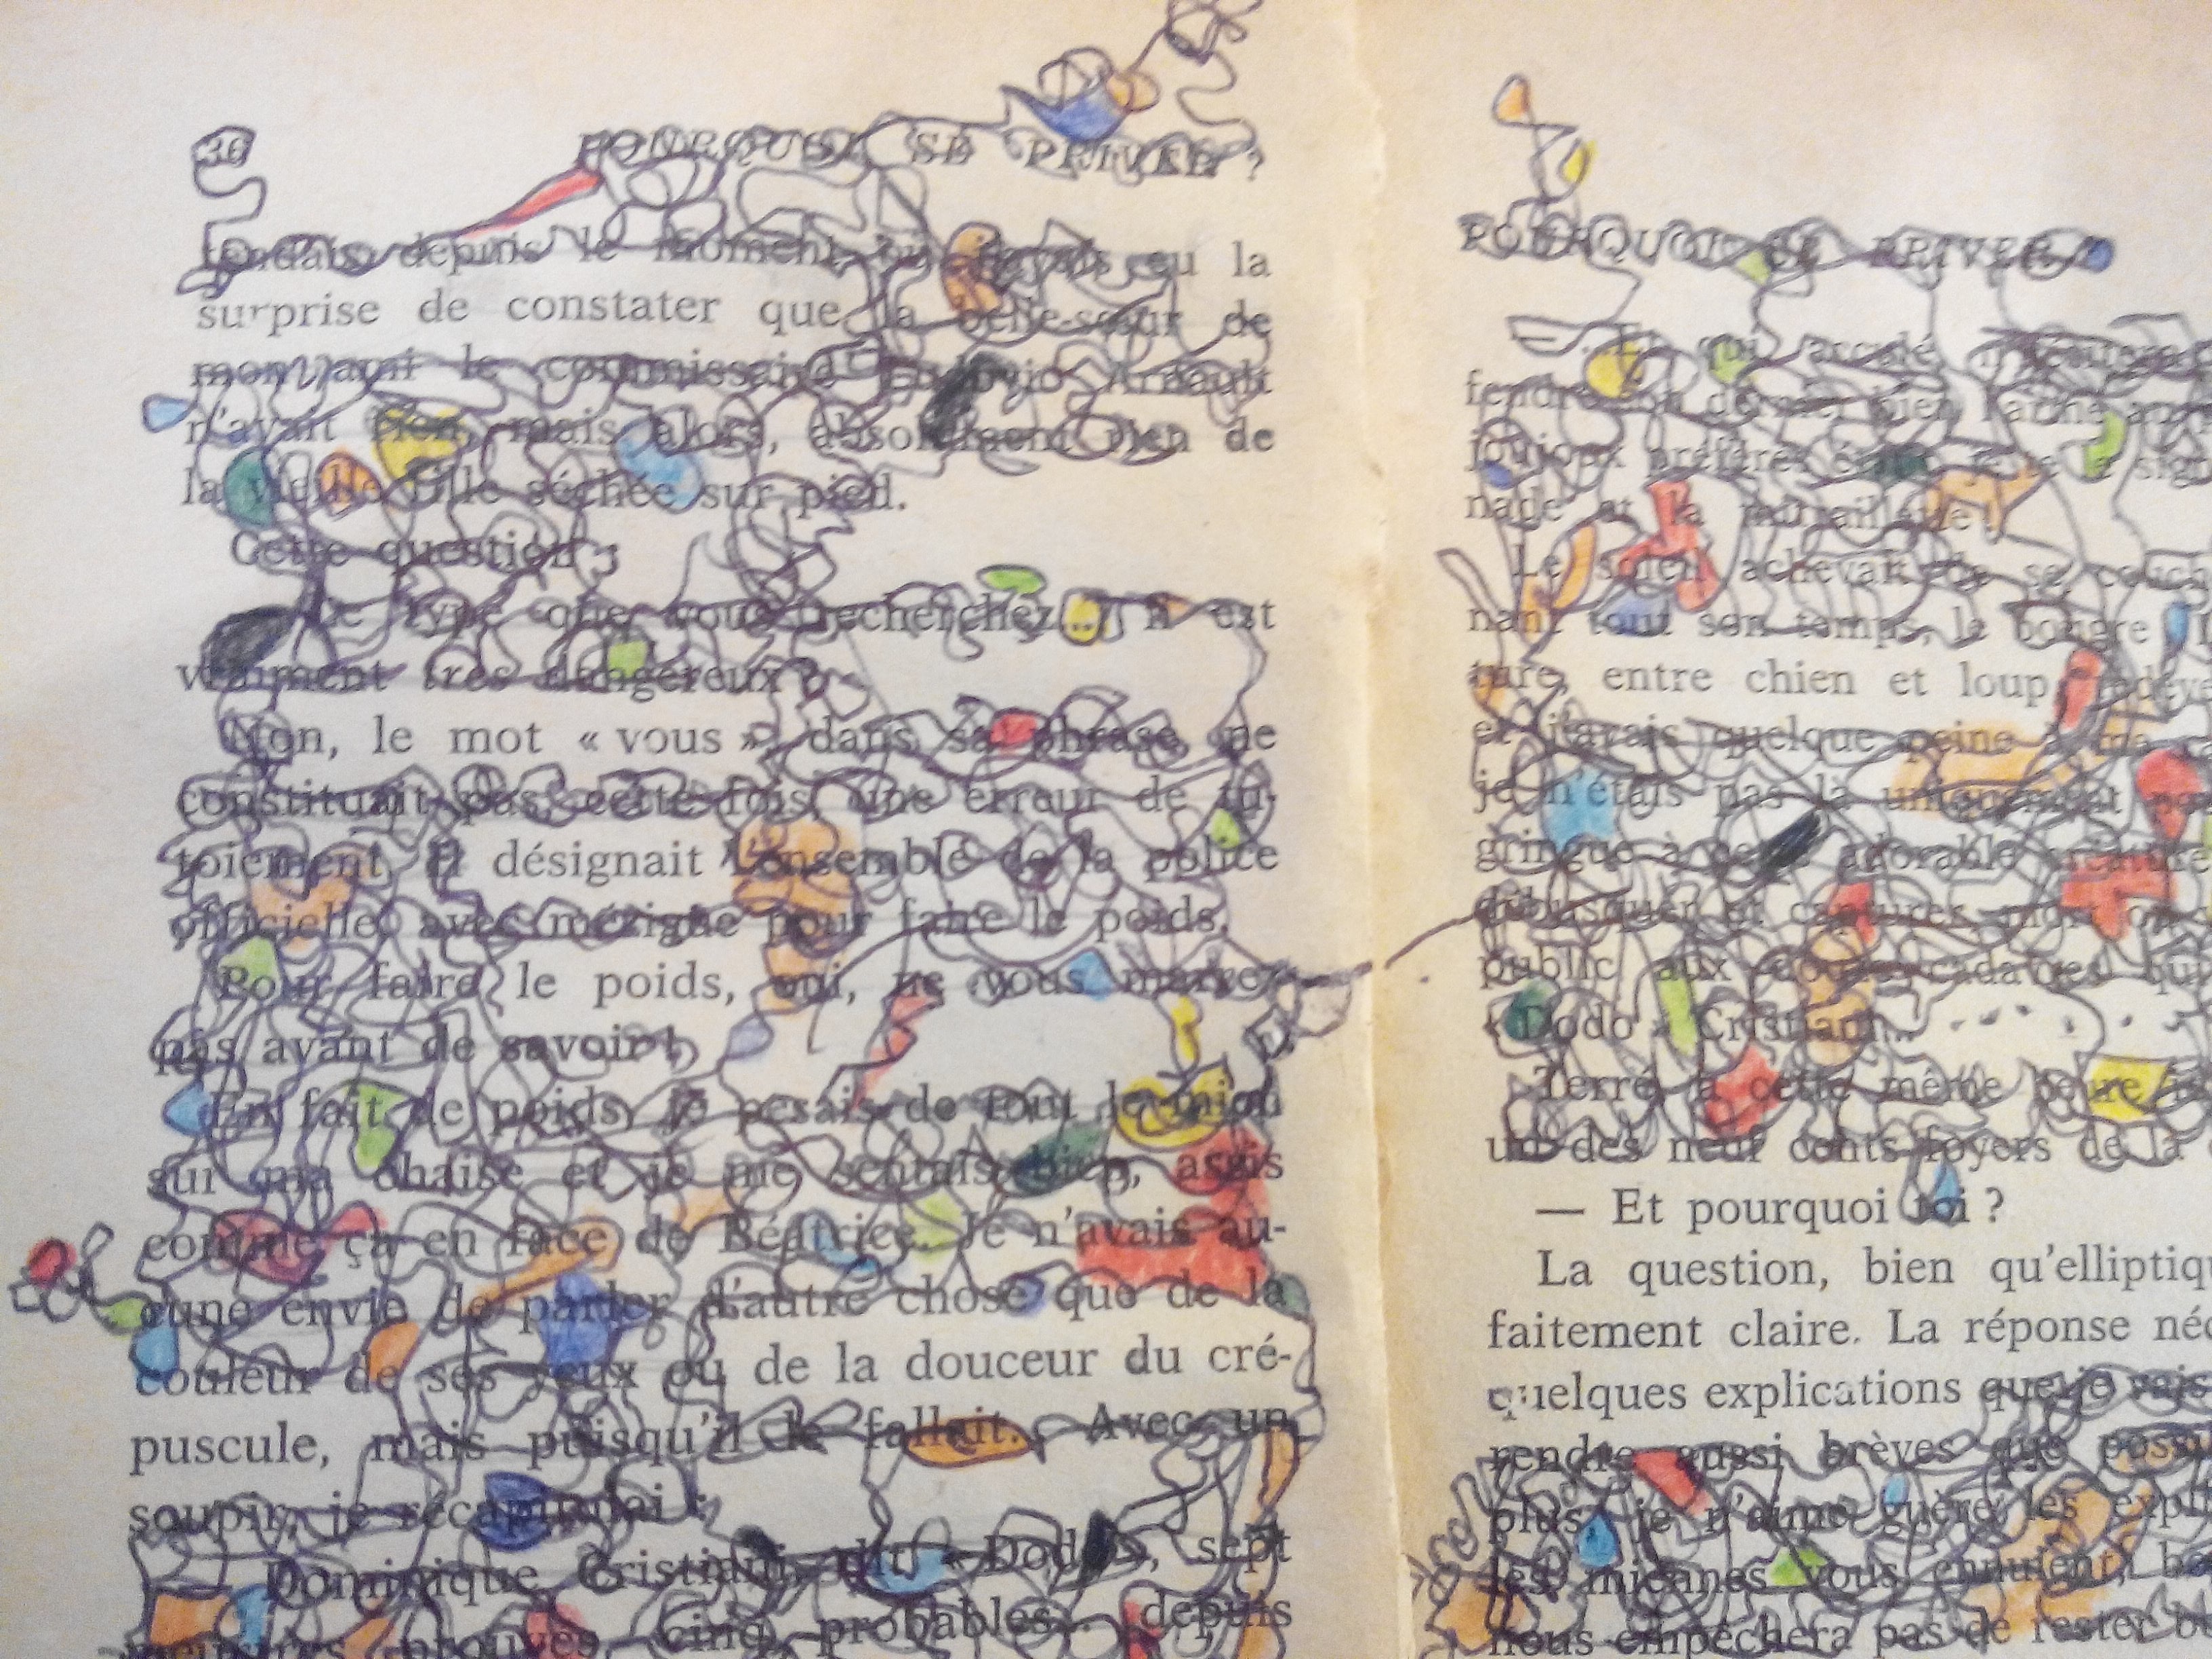 36 POURQUOI SE PRIVER ?
tendais depuis le moment où j'avais eu la
surprise de constater que la belle-sœur de
mon ami le commissaire Arnault
n'avait rien, mais alors, absolument rien de
la vieille fille séchée sur pied.
Cette question :
Le type que vous recherchez... il est
vraiment très dangereux ?
Non, le mot « vous », dans sa phrase, ne
constituait pas, cette fois, une erreur de tu-
toiement. Il désignait l'ensemble de la police
officielle, avec mézigue pour faire le poids.
Pour faire le poids, oui, ne vous marrez
pas avant de savoir !
En fait de poids, je pesais de tout le mien
sur ma chaise et je me sentais bien, assis
comme ça en face de Béatrice. Je n'avais au-
cune envie de parler d'autre chose que de la
couleur de ses yeux ou de la douceur du cré-
puscule, mais puisqu'il le fallait... Avec un
soupir, je récapitulai :
Dominique Cristiani, dit « Dodo », sept
meurtres prouvés, cinq probables... depuis
POURQUOI SE PRIVER ?
Et qui, acculé,
fendre son dernier bien l'arme au
joujoux préférés étant
nade et la mitraillette.
Le soleil achevait de se couch
nant tout son temps, le bougre
ture, entre chien et loup,
et j'avais quelque peine à ma
je n'étais pas là uniquement
gringue à cette adorable créature
débusquer et capturer, mort ou
public aux douze cadavres
« Dodo » Cristiani...
Terré à cette même heure
un des neuf cents foyers de la
— Et pourquoi toi ?
La question, bien qu'elliptiq
faitement claire. La réponse néc
quelques explications que je vais
rendre aussi brèves que possi
plus, je n'aime guère les expli
les miennes vous ennuient,
nous empêchera pas de rester